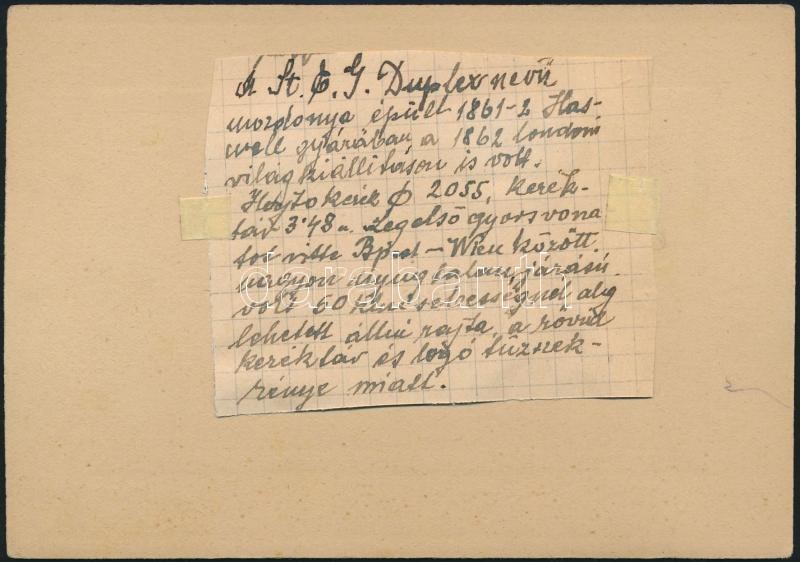 A St. E. G. Duplex nevü
mozdonya épült 1861-2 Has-
well gyárában, a 1862 londoni
világkiállitáson is volt.
Hajtokerék ϕ 2055, kerék-
táv 3·48 m. Legelső gyorsvona
tot vitte Bpest - Wien között.
nagyon nyugtalan járásu
volt 60 km sebességnél alig
lehetett állni rajta, a rövid
keréktáv és logó tüzszek-
rénye miatt.
darabanth